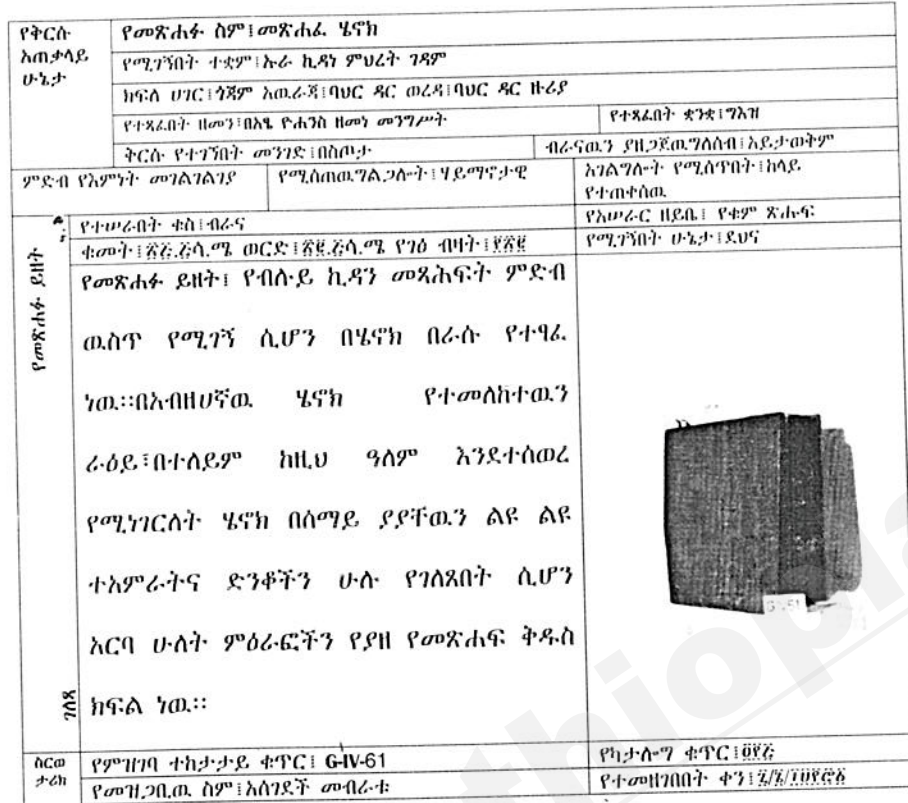 የቅርሱ አጠቃላይ ሁኔታ
የመጽሐፉ ስም፤መጽሐፈ ሄኖክ
የሚገኝበት ተቋም፤ኡራ ኪዳነ ምህረት ገዳም
ክፍለ ሀገር፤ጎጃም አዉራጃ፤ባህር ዳር ወረዳ፤ባህር ዳር ዙሪያ
የተጻፈበት ዘመን፤በአፄ ዮሐንስ ዘመነ መንግሥት
የተጻፈበት ቋንቋ፤ግእዝ
ቅርሱ የተገኘበት መንገድ፤በስጦታ
ብራናዉን ያዘጋጀዉግለሰብ፤አይታወቅም
ምድብ የእምነት መገልገልገያ
የሚሰጠዉግልጋሎት፤ሃይማኖታዊ
አገልግሎት የሚሰጥበት፤ከላይ
የተጠቀሰዉ
የመጽሐፉ ይዘት
የተሠራበት ቁስ፤ብራና
የአሠራር ዘይቤ፤ የቁም ጽሑፍ
ቁመት፤ ወርድ፤ የገፅ ብዛት፤
የሚገኝበት ሁኔታ፤ደህና
የመጽሐፉ ይዘት፤ የብሉይ ኪዳን መጻሕፍት ምድብ
ዉስጥ የሚገኝ ሲሆን በሄኖክ በራሱ የተፃፈ
ነዉ።በአብዘሀኛዉ ሄኖክ የተመለከተዉን
ራዕይ፣በተለይም ከዚህ ዓለም እንደተሰወረ
የሚነገርለት ሄኖክ በሰማይ ያያቸዉን ልዩ ልዩ
ተአምራትና ድንቆችን ሁሉ የገለጸበት ሲሆን
አርባ ሁለት ምዕራፎችን የያዘ የመጽሐፍ ቅዱስ
ክፍል ነዉ።
ገለጻ
ስርወ ታሪክ
የምዝገባ ተከታታይ ቁጥር፤ G-IV-61
የካታሎግ ቁጥር፤
የመዝጋቢዉ ስም፤አሰገደች መብራቱ
የተመዘገበበት ቀን፤